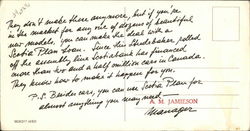 They don't make these anymore, but if you're
in the market for any one of dozens of beautiful
new models, you can make the deal with a
Scotia Plan Loan. Since this Studebaker rolled
off the assembly line Scotiabank has financed
more than two and a half million cars in Canada.
They know how to make it happen for you.
P.S. Besides cars, you can use Scotia Plan for
almost anything you may need
A. M. JAMIESON
Manager